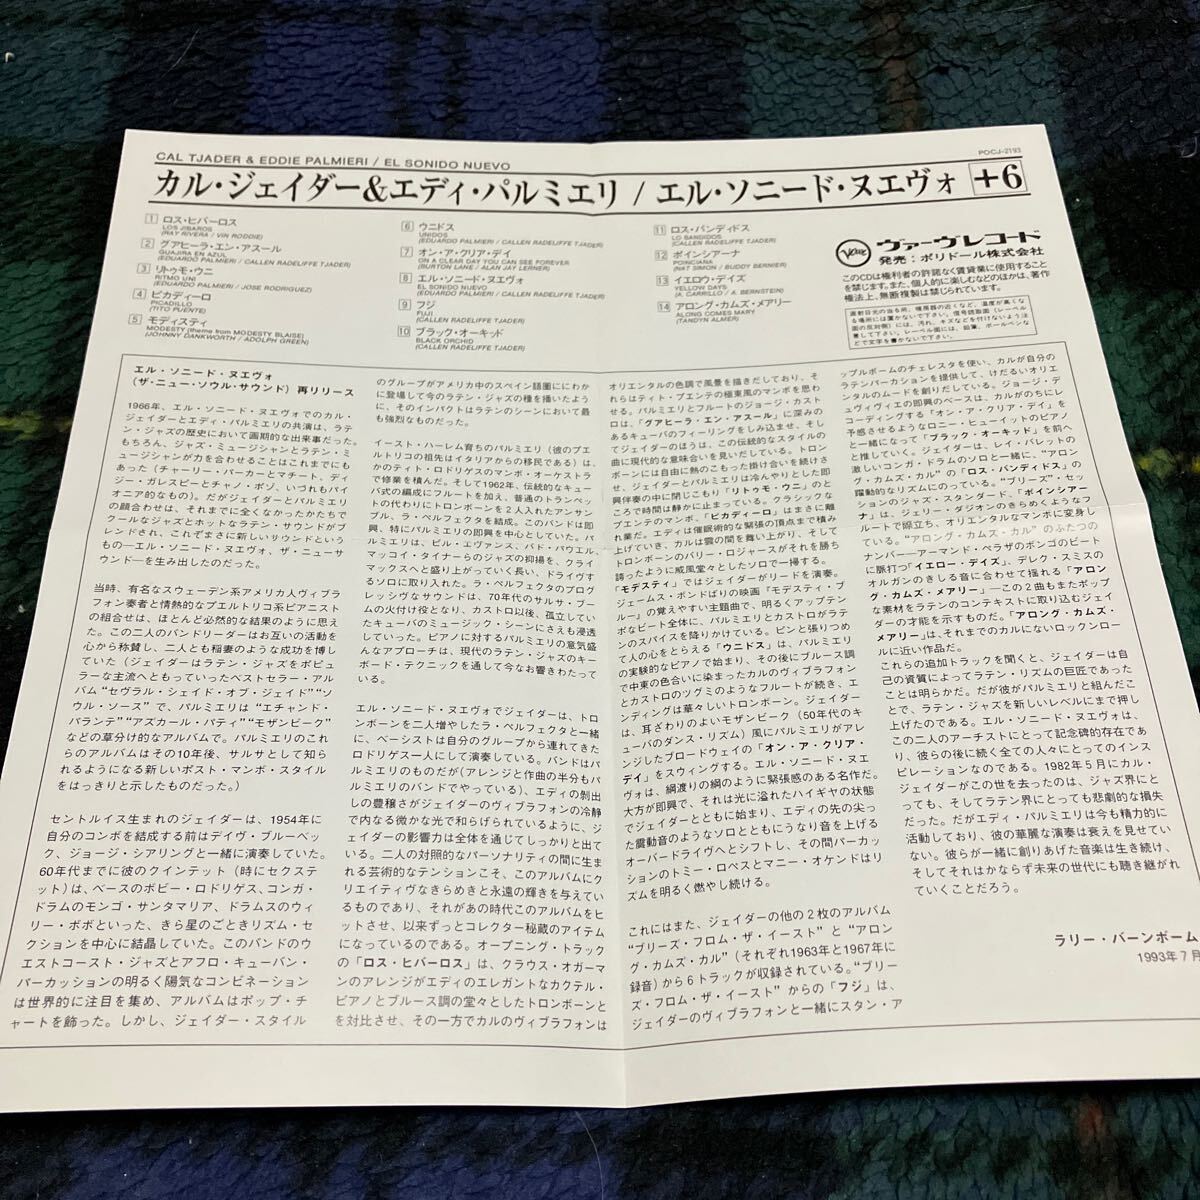 CAL TJADER & EDDIE PALMIERI / EL SONIDO NUEVO
POCJ-2193
カル・ジェイダー&エディ・パルミエリ / エル・ソニード・ヌエヴォ +6
1 ロス・ヒバーロス
LOS JIBAROS
(RAY RIVERA / VIN RODDIE)
2 グアヒーラ・エン・アスール
GUAJIRA EN AZUL
(EDUARDO PALMIERI / CALLEN RADELIFFE TJADER)
3 リトゥモ・ウニ
RITMO UNI
(EDUARDO PALMIERI / JOSE RODRIGUEZ)
4 ピカディーロ
PICADILLO
(TITO PUENTE)
5 モディスティ
MODESTY (theme from MODESTY BLAISE)
(JOHNNY DANKWORTH / ADOLPH GREEN)
6 ウニドス
UNIDOS
(EDUARDO PALMIERI / CALLEN RADELIFFE TJADER)
7 オン・ア・クリア・デイ
ON A CLEAR DAY YOU CAN SEE FOREVER
(BURTON LANE / ALAN JAY LERNER)
8 エル・ソニード・ヌエヴォ
EL SONIDO NUEVO
(EDUARDO PALMIERI / CALLEN RADELIFFE TJADER)
9 フジ
FUJI
(CALLEN RADELIFFE TJADER)
10 ブラック・オーキッド
BLACK ORCHID
(CALLEN RADELIFFE TJADER)
11 ロス・バンディドス
LO BANDIDOS
(CALLEN RADELIFFE TJADER)
12 ポインシアーナ
POINCIANA
(NAT SIMON / BUDDY BERNIER)
13 イエロウ・デイズ
YELLOW DAYS
(A. CARRILLO / A. BERNSTEIN)
14 アロング・カムズ・メアリー
ALONG COMES MARY
(TANDYN ALMER)
Verve ヴァーヴレコード
発売：ポリドール株式会社
このCDは権利者の許諾なく賃貸業に使用すること
を禁じます。また、個人的に楽しむなどのほかは、著作
権法上、無断複製は禁じられています。
直射日光の当る所、暖房器の近くなど、温度が高くな
る場所には置かないで下さい。信号読取面（レーベル
面の反対側）には、汚れ、キズなどを付けないよう注
意して下さい。レーベル面には、鉛筆、ボールペンな
どで文字を書かないで下さい。
エル・ソニード・ヌエヴォ
（ザ・ニュー・ソウル・サウンド）再リリース
1966年、エル・ソニード・ヌエヴォでのカル・
ジェイダーとエディ・パルミエリの共演は、ラテ
ン・ジャズの歴史において画期的な出来事だった。
もちろん、ジャズ・ミュージシャンとラテン・ミ
ュージシャンが力を合わせることはこれまでにも
あった（チャーリー・パーカーとマチート、ディ
ジー・ガレスピーとチャノ・ポソ、いづれもパイ
オニア的なもの）。だがジェイダーとパルミエリ
の顔合わせは、それまでに全くなかったかたちで
クールなジャズとホットなラテン・サウンドがブ
レンドされ、これぞまさに新しいサウンドという
もの―エル・ソニード・ヌエヴォ、ザ・ニューサ
ウンド―を生み出したのだった。
当時、有名なスウェーデン系アメリカ人ヴィブラ
フォン奏者と情熱的なプエルトリコ系ピアニスト
の組合せは、ほとんど必然的な結果のように思え
た。この二人のバンドリーダーはお互いの活動を
心から称賛し、二人とも稲妻のような成功を博し
ていた（ジェイダーはラテン・ジャズをポピュ
ラーな主流へともっていったベストセラー・アル
バム“セヴラル・シェイド・オブ・ジェイド”“ソ
ウル・ソース”で、パルミエリは“エチャンド・
パランテ”“アズカール・パティ”“モザンビーク”
などの草分け的なアルバムで。パルミエリのこれ
らのアルバムはその10年後、サルサとして知ら
れるようになる新しいポスト・マンボ・スタイル
をはっきりと示したものだった。）
セントルイス生まれのジェイダーは、1954年に
自分のコンボを結成する前はデイヴ・ブルーベッ
ク、ジョージ・シアリングと一緒に演奏していた。
60年代までに彼のクインテット（時にセクステ
ット）は、ベースのボビー・ロドリゲス、コンガ・
ドラムのモンゴ・サンタマリア、ドラムスのウィ
リー・ボボといった、きら星のごときリズム・セ
クションを中心に結晶していた。このバンドのウ
エストコースト・ジャズとアフロ・キューバン・
パーカッションの明るく陽気なコンビネーション
は世界的に注目を集め、アルバムはポップ・チ
ャートを飾った。しかし、ジェイダー・スタイル
のグループがアメリカ中のスペイン語圏ににわか
に登場して今のラテン・ジャズの種を播いたよう
に、そのインパクトはラテンのシーンにおいて最
も強烈なものだった。
イースト・ハーレム育ちのパルミエリ（彼のプエ
ルトリコの祖先はイタリアからの移民である）は、
かのティト・ロドリゲスのマンボ・オーケストラ
で修業を積んだ。そして1962年、伝統的なキュー
バ式の編成にフルートを加え、普通のトランペッ
トの代わりにトロンボーンを2人入れたアンサン
ブル、ラ・ペルフェクタを結成。このバンドは即
興、特にパルミエリの即興を中心としていた。パ
ルミエリは、ビル・エヴァンス、バド・パウエル、
マッコイ・タイナーらのジャズの抑揚を、クライ
マックスへと盛り上がっていく長い、ドライヴす
るソロに取り入れた。ラ・ペルフェクタのプログ
レッシヴなサウンドは、70年代のサルサ・ブー
ムの火付け役となり、カストロ以後、孤立してい
たキューバのミュージック・シーンにさえも浸透
していった。ピアノに対するパルミエリの意気盛
んなアプローチは、現代のラテン・ジャズのキー
ボード・テクニックを通して今なお響きわたって
いる。
エル・ソニード・ヌエヴォでジェイダーは、トロ
ンボーンを二人増やしたラ・ペルフェクタと一緒
に、ベーシストは自分のグループから連れてきた
ロドリゲス一人にして演奏している。バンドはパ
ルミエリのものだが（アレンジと作曲の半分もパ
ルミエリのバンドでやっている）、エディの剝出
しの豊穣さがジェイダーのヴィブラフォンの冷静
で内なる微かな光で和らげられているように、ジ
ェイダーの影響力は全体を通じてしっかりと出て
いる。二人の対照的なパーソナリティの間に生ま
れる芸術的なテンションこそ、このアルバムにク
リエイティヴなきらめきと永遠の輝きを与えてい
るものであり、それがあの時代このアルバムをヒ
ットさせ、以来ずっとコレクター秘蔵のアイテム
になっているのである。オープニング・トラック
の「ロス・ヒバーロス」は、クラウス・オガーマ
ンのアレンジがエディのエレガントなカクテル・
ピアノとブルース調の堂々としたトロンボーンと
を対比させ、その一方でカルのヴィブラフォンは
オリエンタルの色調で風景を描きだしており、そ
れらはティト・プエンテの極東風のマンボを思わ
せる。パルミエリとフルートのジョージ・カスト
ロは、「グアヒーラ・エン・アスール」に深みの
あるキューバのフィーリングをしみ込ませ、そし
てジェイダーのほうは、この伝統的なスタイルの
曲に現代的な意味合いを見いだしている。トロン
ボーンには自由に熱のこもった掛け合いを続けさ
せ、ジェイダーとパルミエリは冷んやりとした即
興伴奏の中に閉じこもり「リトゥモ・ウニ」のと
ころで時間は静かに止まっている。クラシックな
プエンテのマンボ、「ピカディーロ」はまさに離
れ業だ。エディは催眠術的な緊張の頂点まで積み
上げていき、カルは雲の間を舞い上がり、そして
トロンボーンのバリー・ロジャースがそれを勝ち
誇ったように威風堂々としたソロで一掃する。
「モデスティ」ではジェイダーがリードを演奏。
ジェームス・ボンドばりの映画『モデスティ・ブ
ルー』の覚えやすい主題曲で、明るくアップテン
ポなビート全体に、パルミエリとカストロがラテ
ンのスパイスを降りかけている。ピンと張りつめ
て人の心をとらえる「ウニドス」は、パルミエリ
の実験的なピアノで始まり、その後にブルース調
で中東の色合いに染まったカルのヴィブラフォン
とカストロのツグミのようなフルートが続き、エ
ンディングは華々しいトロンボーン。ジェイダー
は、耳ざわりのよいモザンビーク（50年代のキ
ューバのダンス・リズム）風にパルミエリがアレ
ンジしたブロードウェイの「オン・ア・クリア・
デイ」をスウィングする。エル・ソニード・ヌエ
ヴォは、綱渡りの綱のように緊張感のある名作だ。
大方が即興で、それは光に溢れたハイギヤの状態
でジェイダーとともに始まり、エディの先の尖っ
た震動音のようなソロとともにうなり音を上げる
オーバードライヴへとシフトし、その間パーカッ
ションのトミー・ロペスとマニー・オケンドはリ
ズムを明るく燃やし続ける。
これにはまた、ジェイダーの他の2枚のアルバム
“ブリーズ・フロム・ザ・イースト”と“アロン
グ・カムズ・カル”（それぞれ1963年と1967年に
録音）から6トラックが収録されている。“ブリー
ズ・フロム・ザ・イースト”からの「フジ」は、
ジェイダーのヴィブラフォンと一緒にスタン・ア
ップルボームのチェレスタを使い、カルが自分の
ラテンパーカションを提供して、けだるいオリエ
ンタルのムードを創りだしている。ジョージ・デ
ュヴィヴィエの即興のベースは、カルがのちにレ
コーディングする「オン・ア・クリア・デイ」を
予感させるようなロニー・ヒューイットのピアノ
と一緒になって「ブラック・オーキッド」を前へ
と推していく。ジェイダーは、レイ・バレットの
激しいコンガ・ドラムのソロと一緒に、“アロン
グ・カムズ・カル”の「ロス・バンディドス」の
躍動的なリズムにのっている。“ブリーズ”・セッ
ションのジャズ・スタンダード、「ポインシアー
ナ」は、ジェリー・ダジオンのきらめくようなフ
ルートで際立ち、オリエンタルなマンボに変身し
ている。“アロング・カムズ・カル”のふたつの
ナンバー―アーマンド・ペラザのボンゴのビート
に脈打つ「イエロー・デイズ」、デレク・スミスの
オルガンのきしる音に合わせて揺れる「アロン
グ・カムズ・メアリー」―この2曲もまたポップ
な素材をラテンのコンテキストに取り込むジェイ
ダーの才能を示すものだ。「アロング・カムズ・
メアリー」は、それまでのカルにないロックンロー
ルに近い作品だ。
これらの追加トラックを聞くと、ジェイダーは自
己の資質によってラテン・リズムの巨匠であった
ことは明らかだ。だが彼がパルミエリと組んだこ
とで、ラテン・ジャズを新しいレベルにまで押し
上げたのである。エル・ソニード・ヌエヴォは、
この二人のアーチストにとって記念碑的存在であ
り、彼らの後に続く全ての人々にとってのインス
ピレーションなのである。1982年5月にカル・
ジェイダーがこの世を去ったのは、ジャズ界にと
っても、そしてラテン界にとっても悲劇的な損失
だった。だがエディ・パルミエリは今も精力的に
活動しており、彼の華麗な演奏は衰えを見せてい
ない。彼らが一緒に創りあげた音楽は生き続け、
そしてそれはかならず未来の世代にも聴き継がれ
ていくことだろう。
ラリー・バーンボーム
1993年7月